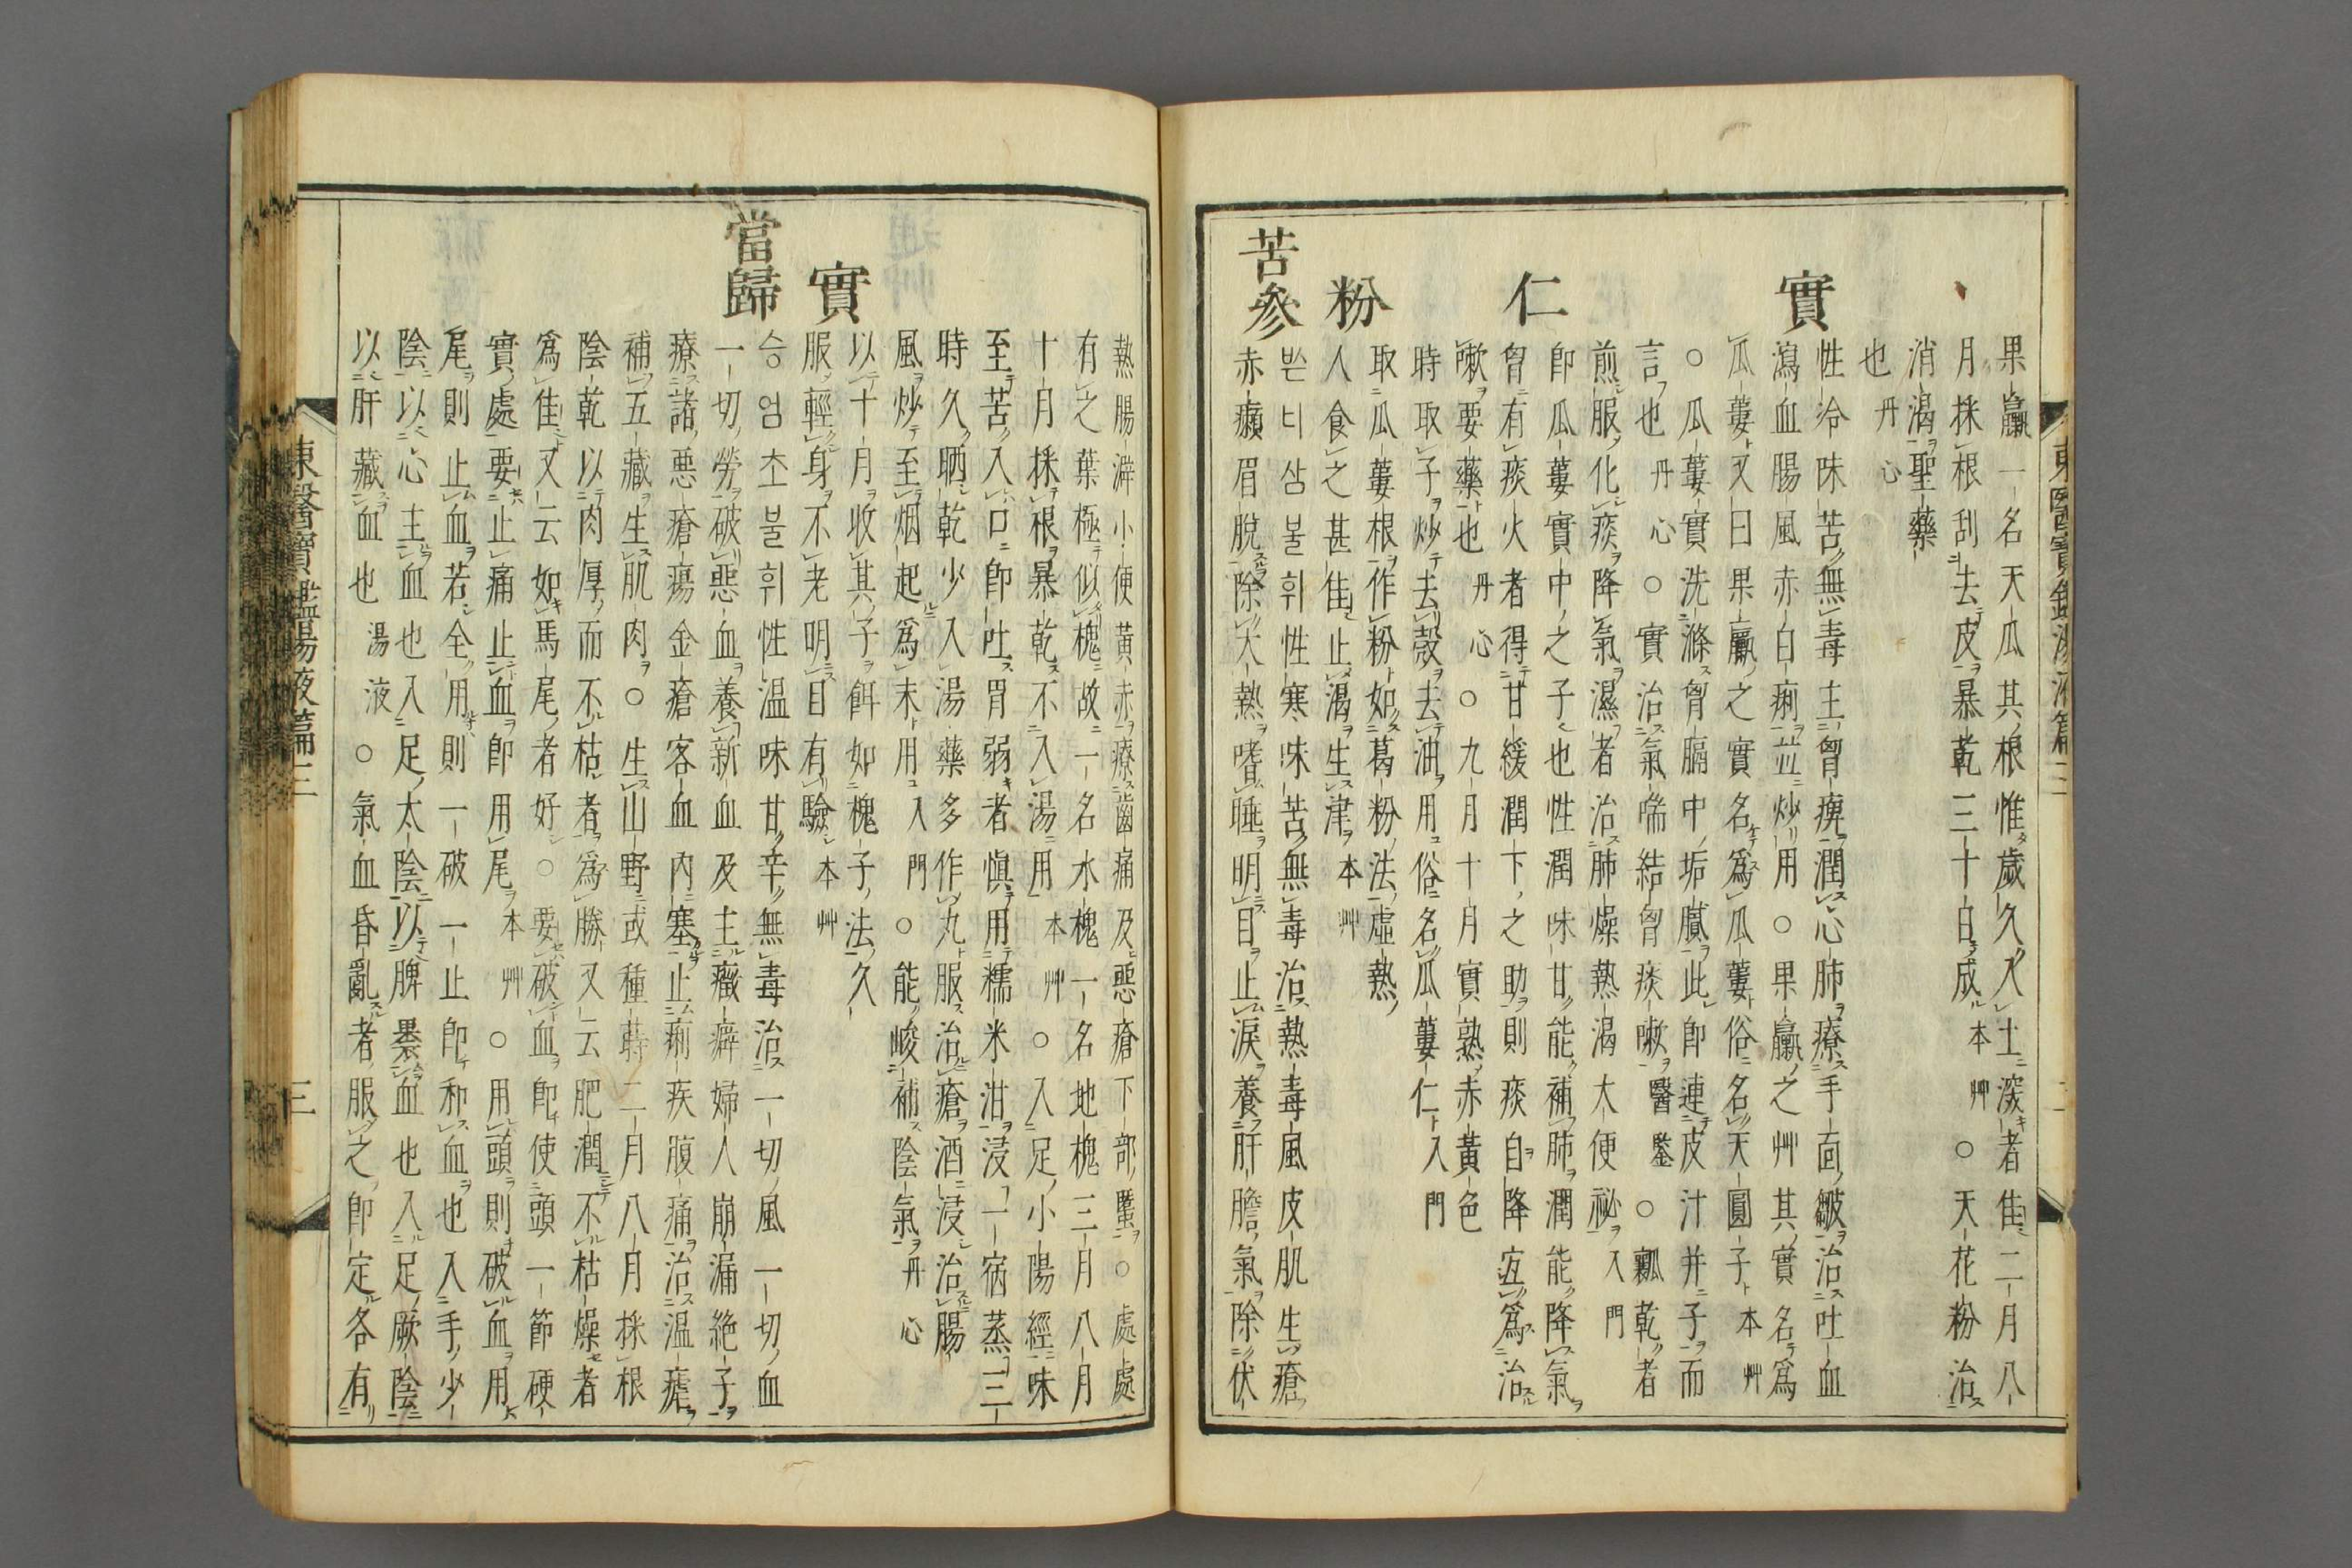 東醫寶鑑湯液篇三
果蠃一名天瓜其根惟歲久入土深者佳二月八
月採根刮去皮暴乾三十日成本艸○天花粉治
消渴聖藥
也丹心
實
性冷味苦無毒主胷痺潤心肺療手面皺治吐血
瀉血腸風赤白痢並炒用○果蠃之艸其實名爲
瓜蔞又曰果蠃之實名爲瓜蔞俗名天圓子本艸
○瓜蔞實洗滌胷膈中垢膩此卽連皮汁幷子而
言也丹心○實治氣喘結胷痰嗽醫鑒○瓤乾者
煎服化痰降氣濕者治肺燥熱渴大便祕入門
仁
卽瓜蔞實中之子也性潤味甘能補肺潤能降氣
胷有痰火者得甘緩潤下之助則痰自降宜爲治
嗽要藥也丹心○九月十月實熟赤黃色
時取子炒去殼去油用俗名瓜蔞仁入門
粉
取瓜蔞根作粉如葛粉法虛熱
人食之甚佳止渴生津本艸
苦參
ᄡᅳᆫ너삼불휘性寒味苦無毒治熱毒風皮肌生瘡
赤癩眉脫除大熱嗜睡明目止淚養肝膽氣除伏
熱腸澼小便黃赤療齒痛及惡瘡下部䘌○處處
有之葉極似槐故一名水槐一名地槐三月八月
十月採根暴乾不入湯用本艸○入足小陽經味
至苦入口卽吐胃弱者愼用糯米泔浸一宿蒸三
時久晒乾少入湯藥多作丸服治瘡酒浸治腸
風炒至烟起爲末用入門○能峻補陰氣丹心
實
以十月收其子餌如槐子法久
服輕身不老明目有驗本艸
當歸
승엄초불휘性温味甘辛無毒治一切風一切血
一切勞破惡血養新血及主癥癖婦人崩漏絶子
療諸惡瘡瘍金瘡客血內塞止痢疾腹痛治温瘧
補五藏生肌肉○生山野或種蒔二月八月採根
陰乾以肉厚而不枯者爲勝又云肥潤不枯燥者
爲佳又云如馬尾者好○要破血卽使頭一節硬
實處要止痛止血卽用尾本艸○用頭則破血用
尾則止血若全用則一破一止卽和血也入手少
陰以心主血也入足太陰以脾褁血也入足厥陰
以肝藏血也湯液○氣血昏亂者服之卽定各有
東醫寶鑑湯液篇三
三